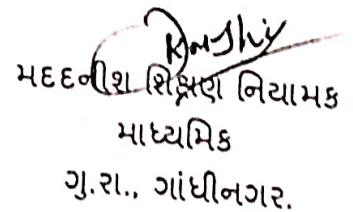 મદદનીશ શિક્ષણ નિયામક
માધ્યમિક
ગુ.રા., ગાંધીનગર.